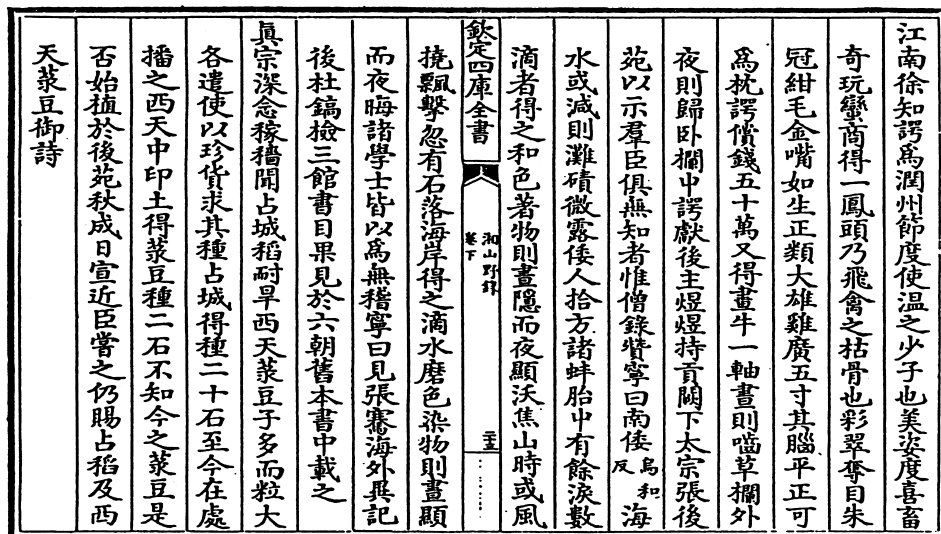 江南徐知諤爲潤州節度使温之少子也美姿度喜畜
奇玩蠻商得一鳳頭乃飛禽之枯骨也彩翠奪目朱
冠紺毛金嘴如生正類大雄雞廣五寸其腦平正可
爲枕諤償錢五十萬又得畫牛一軸晝則嚙草欄外
夜則歸卧欄中諤獻後主煜煜持貢闕下太宗張後
苑以示羣臣俱無知者惟僧錄贊寧曰南倭烏和反海
水或減則灘磧微露倭人拾方諸蚌胎中有餘淚數
滴者得之和色著物則晝隱而夜顯沃焦山時或風
欽定四庫全書
湘山野錄
卷下
二十五
撓飄擊忽有石落海岸得之滴水磨色染物則晝顯
而夜晦諸學士皆以爲無稽寧曰見張騫海外異記
後杜鎬檢三館書目果見於六朝舊本書中載之
眞宗深念稼穡聞占城稻耐旱西天菉豆子多而粒大
各遣使以珍貨求其種占城得種二十石至今在處
播之西天中印土得菉豆種二石不知今之菉豆是
否始植於後苑秋成日宣近臣嘗之仍賜占稻及西
天菉豆御詩